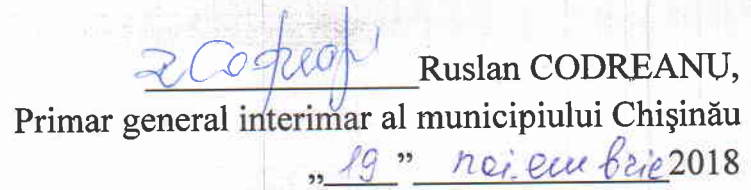 Ruslan CODREANU,
Primar general interimar al municipiului Chişinău
„ 19 ” noiembrie 2018